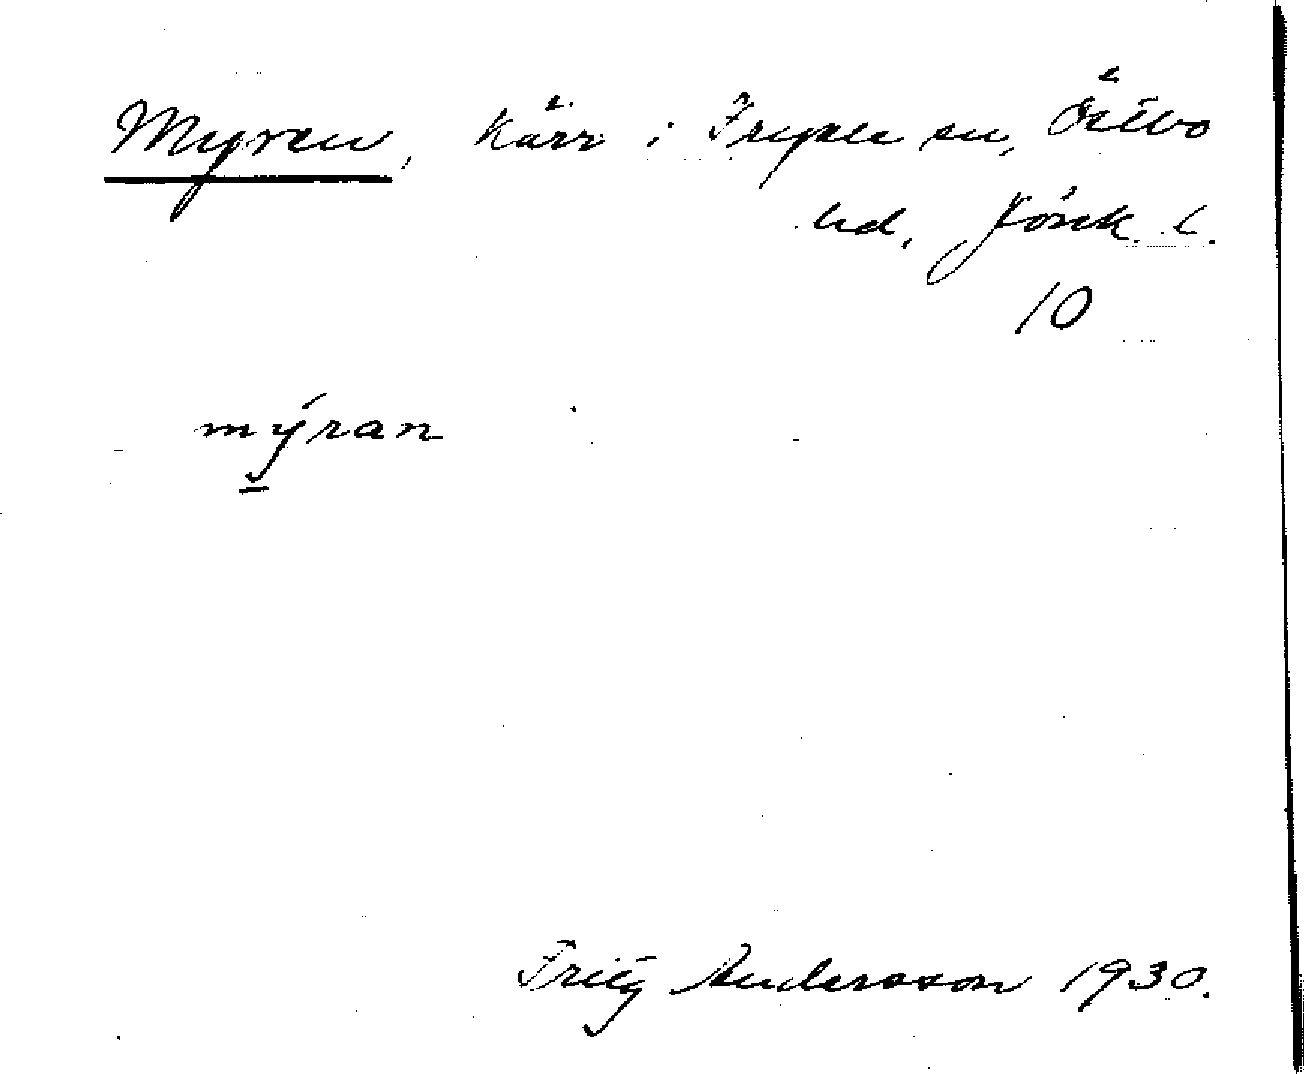 Myren, kärr i Fryele sn, Östbo
hd, Jönk. l.
10
mýran
Fritz Andersson 1930.